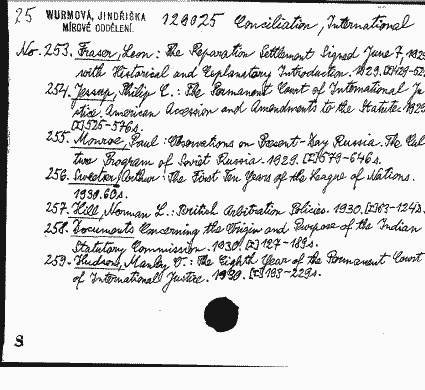 25 WURMOVÁ, JINDŘIŠKA 129025 Conciliation, International
MÍROVÉ ODDĚLENÍ.
No. 253. Fraser, Leon: The Reparation Settlement Signed June 7, 1929
with Historical and Explanatory Introduction. 1929.
254. Jessup, Philip C.: The Permanent Court of International Ju
stice, American Accession and Amendments to the Statute. 1929.
[I] 525-576s.
255. Monroe, Paul: Observations on Present-Day Russia. The Cul
tive Program of Soviet Russia. 1929. [I] 579-646s.
256. Sweetser, Arthur: The First Ten Years of the League of Nations.
1930. 60s.
257. Hill, Norman L.: British Arbitration Policies. 1930. [I] 63-124s.
258. Documents Concerning the Origin and Purpose of the Indian
Statutory Commission. 1930. [I] 127-189s.
259. Hudson, Manley O.: The Eighth Year of the Permanent Court
of International Justice. 1930. [I] 193-229s.
S